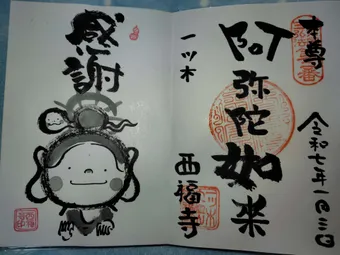 本尊
阿弥陀如来
令和七年一月三日
一ツ木
西福寺
感謝